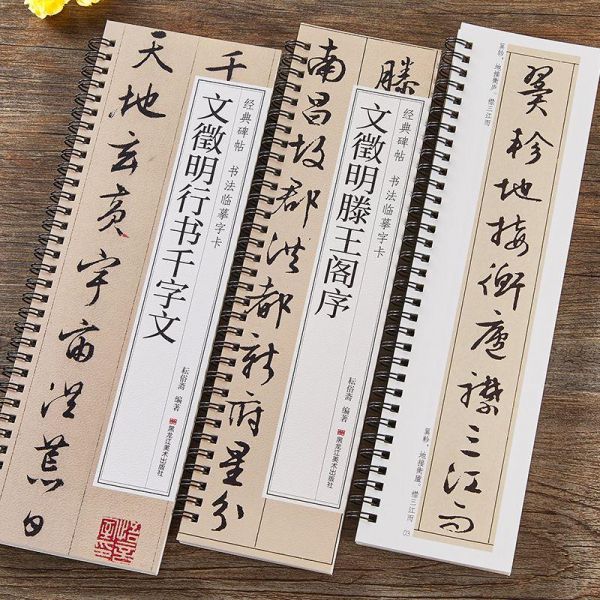 千
天地玄黄宇宙洪荒日
经典碑帖 书法临摹字卡
文徵明行书千字文
耘俗斋 编著
黑龙江美术出版社
滕
南昌故郡洪都新府星分
经典碑帖 书法临摹字卡
文徵明滕王阁序
耘俗斋 编著
黑龙江美术出版社
翼轸，地接衡庐。襟三江而
翼轸地接衡廬襟三江而
翼軫，地接衡廬。襟三江而
03